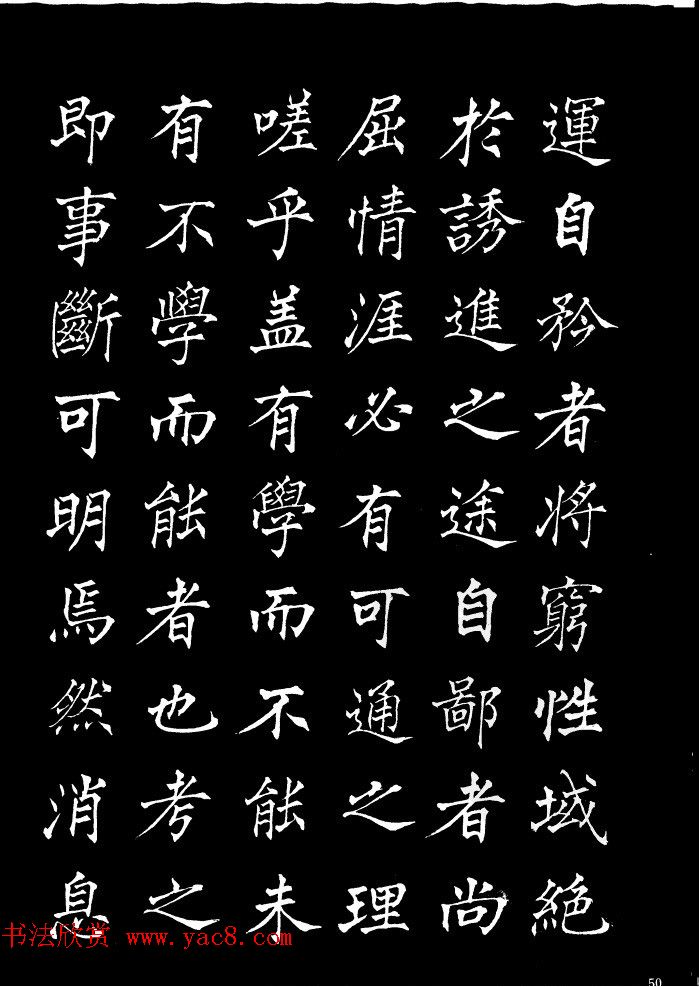 運自矜者將窮性域絕
於誘進之途自鄙者尚
屈情涯必有可通之理
嗟乎盖有學而不能未
有不學而能者也考之
即事斷可明焉然消息
书法欣赏 www.yac8.com
50